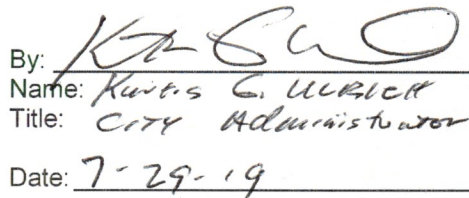 By:
Name: Kurtis G. Ulrich
Title: City Administrator
Date: 7-29-19